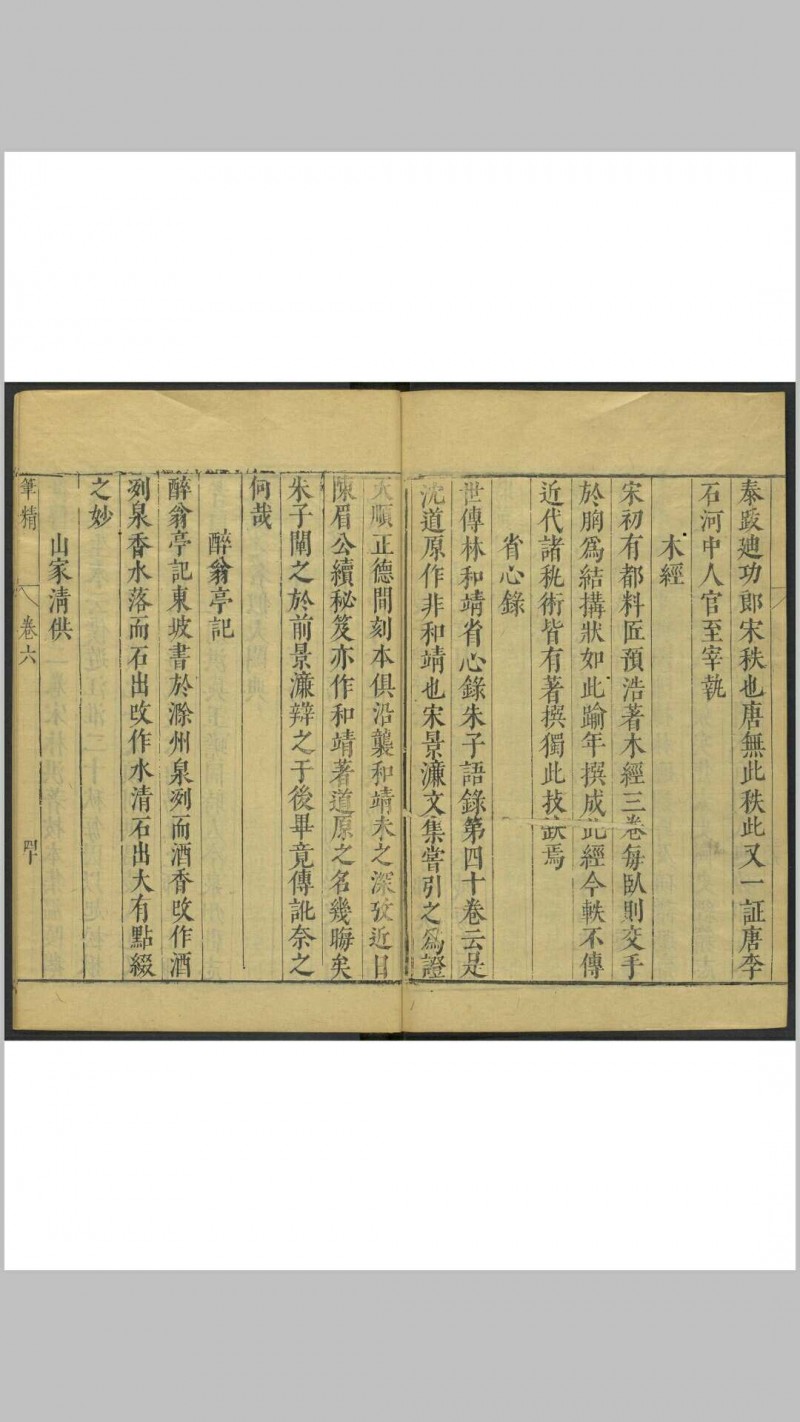 泰跋廸功郎宋秩也唐無此秩此又一証唐李
石河中人官至宰執
木經
宋初有都料匠預浩著木經三卷每臥則交手
於胸爲結搆狀如此踰年撰成此經今軼不傳
近代諸秇術皆有著撰獨此技缺焉
省心錄
世傳林和靖省心錄朱子語錄第四十卷云是
沈道原作非和靖也宋景濂文集嘗引之爲證
天順正德間刻本俱沿襲和靖未之深攷近日
陳眉公續秘笈亦作和靖著道原之名幾晦矣
朱子闡之於前景濂辯之于後畢竟傳訛奈之
何哉
醉翁亭記
醉翁亭記東坡書於滁州泉冽而酒香攺作酒
冽泉香水落而石出攺作水清石出大有點綴
之妙
山家清供
筆精 卷六 四十